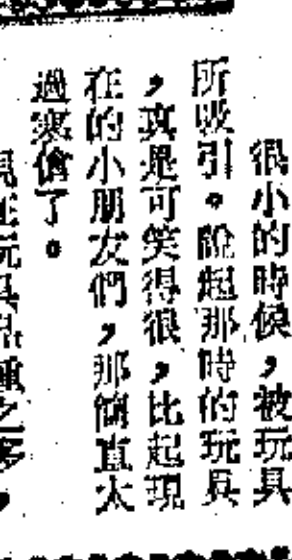 很小的時候，被玩具
所吸引。說起那時的玩具
，真是可笑得很，比起現
在的小朋友們，那簡直太
過寒傖了。
現在玩具品種之多，